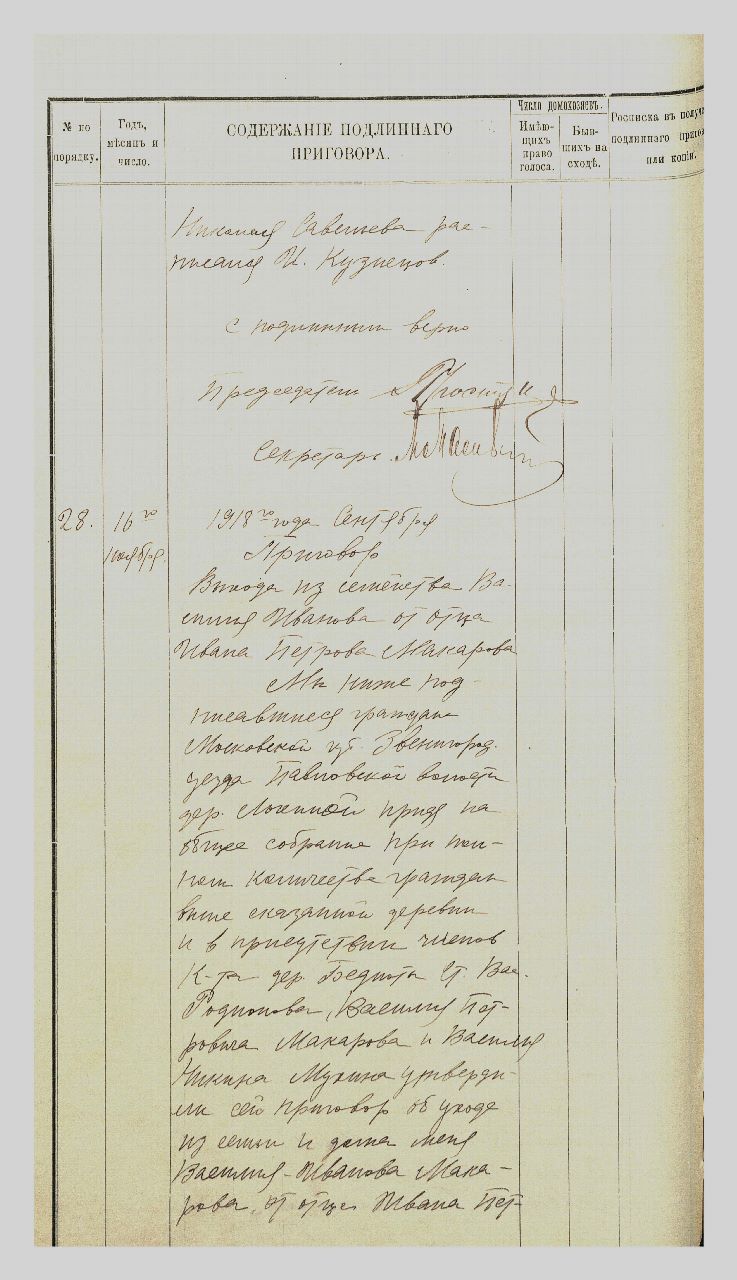 № по порядку.
Годъ, мѣсяцъ и число.
СОДЕРЖАНІЕ ПОДЛИННАГО ПРИГОВОРА.
Число домохозяевъ.
Имѣющихъ право голоса.
Бывшихъ на сходѣ.
Росписка въ получ
подлиннаго приго
или копіи.
Николая Савельева рас-
писался И. Кузнецов.
с подлинным верно
Председатель
Секретарь
28. 16го ноября.
1918го года Сентября
Приговор
Выхода из семейства Ва-
силия Иванова от отца
Ивана Петрова Макарова
Мы ниже под-
писавшиеся граждане
Московской губ. Звенигород.
уезда Павловской волости
дер. придя на
общее собрание при пол-
ном количества граждан
выше сказанной деревни
и в присутствии членов
К-та дер. Бедноты Ст. Вас.
Родионова, Василия Пет-
ровича Макарова и Василия
Никина Мухина утверди-
ли сей приговор об уходе
из семьи и дома меня
Василия Иванова Мака-
рова, от отца Ивана Пет-